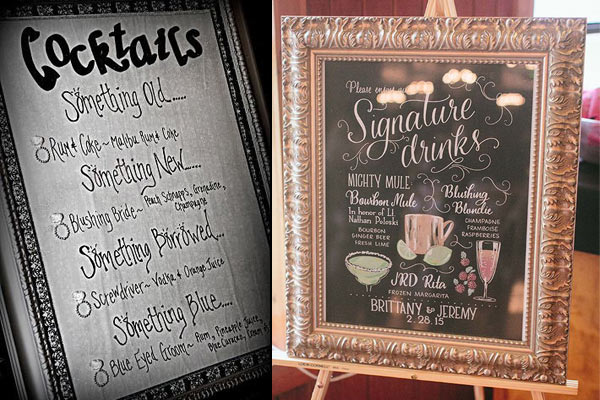 Cocktails
Something Old.....
Rum & Coke ~ Malibu Rum & Coke
Something New.....
Blushing Bride ~ Peach Schnapps, Grenadine,
Champagne
Something Borrowed....
Screwdriver ~ Vodka & Orange Juice
Something Blue....
Blue Eyed Groom ~ Rum, Pineapple Juice,
Blue Curacao, Cream of
Please enjoy our
Signature
drinks
MIGHTY MULE
Bourbon Mule
In honor of Lt
Nathan Poloski
BOURBON
GINGER BEER
FRESH LIME
Blushing
Blondie
CHAMPAGNE
FRAMBOISE
RASPBERRIES
JRD Rita
FROZEN MARGARITA
BRITTANY & JEREMY
2.28.15